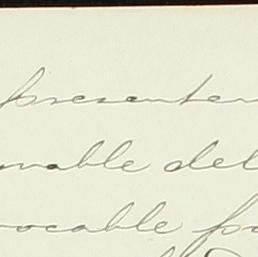 presenten
onable del
ocable fu